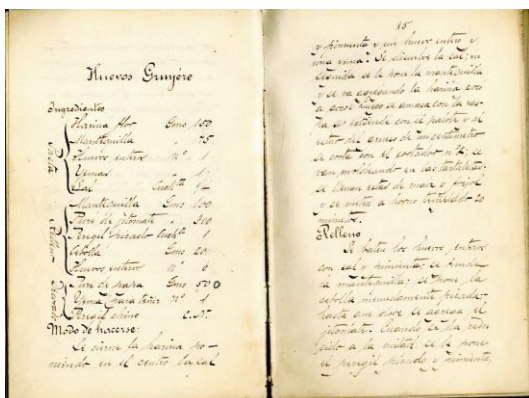 Huevos Gruyére
Ingredientes
Harina flor Gmo 150
Mantequilla " 75
Huevos entero nº 1
Yemas " 1
Sal Cuchta
Mantequilla Gmo 100
Puré de jitomate " 300
Perejil picado Cuchta 1
Cebolla Gmo 20
Huevos entero nº
Puré de papa Gmo 500
Yema para teñir nº 1
Perejil chino C.N.
Modo de hacerse:
Se cierne la harina po-
niendo en el centro la sal
85
y pimienta y un huevo entero y
una yema. Se disuelve la sal, en
seguida se le pone la mantequilla
y se va agregando la harina poco
a poco: luego se amasa con la
se extiende con el palote y al
estar del grueso de un centímetro
se corta con el cortador nº; se
ven moldeando en las tartaletas;
se llenan estas de maíz o frijol
y se mete a horno 20
minutos.
Relleno
Se baten los huevos enteros
con sal y pimienta; se funde
la mantequilla; se pone la
cebolla menudamente picada,
hasta que dore se agrega el
jitomate. Cuando se ha redu
cido a la mitad se le pone
el perejil picado y pimienta,